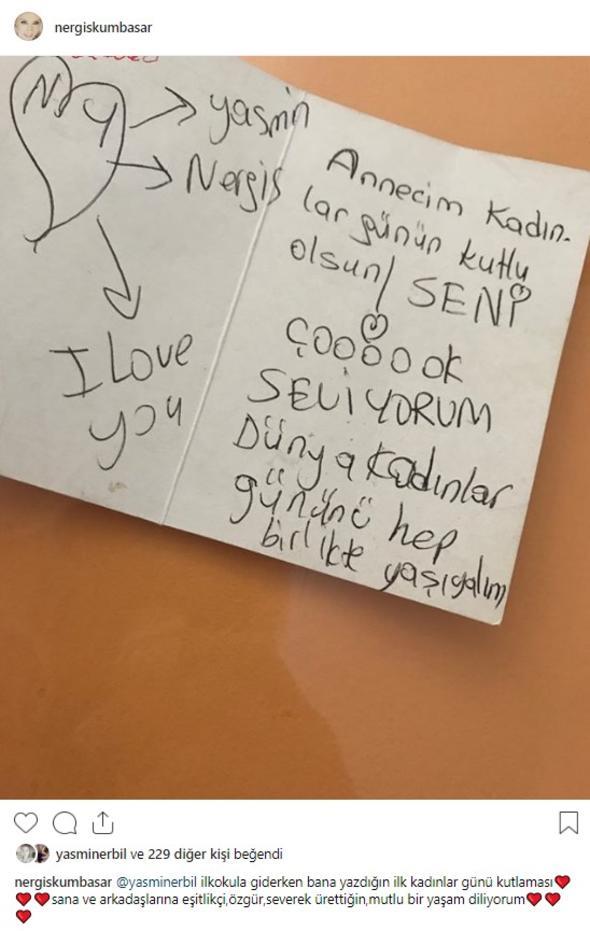 nergiskumbasar
N y
yasmin
Nergis
I Love
you
Annecim Kadın-
lar günün kutlu
olsun! SENİ
ÇOOOOOK
SEVİYORUM
Dünya Kadınlar
gününü hep
birlikte yaşıyalım
yasminerbil ve 229 diğer kişi beğendi
nergiskumbasar @yasminerbil ilkokula giderken bana yazdığın ilk kadınlar günü kutlaması❤
❤❤sana ve arkadaşlarına eşitlikçi,özgür,severek ürettiğin,mutlu bir yaşam diliyorum❤❤
❤